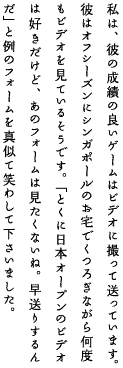 私は、彼の成績の良いゲームはビデオに撮って送っています。
彼はオフシーズンにシンガポールのお宅でくつろぎながら何度
もビデオを見ているそうです。「とくに日本オープンのビデオ
は好きだけど、あのフォームは見たくないね。早送りするん
だ」と例のフォームを真似て笑わして下さいました。